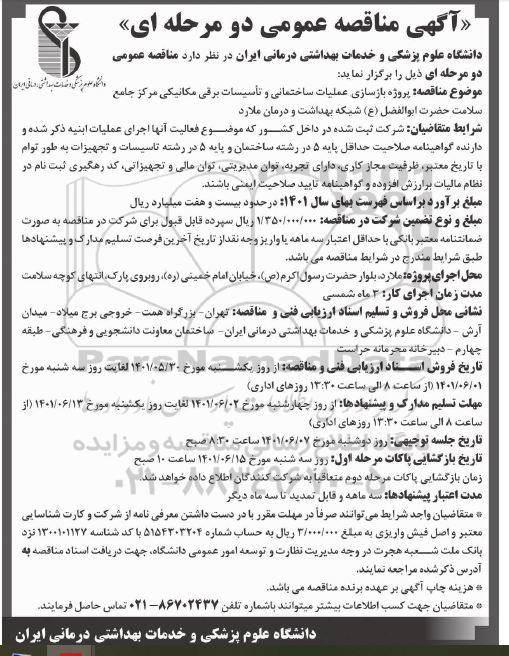 «آگهی مناقصه عمومی دو مرحله ای»
دانشگاه علوم پزشکی و خدمات بهداشتی درمانی ایران
دانشگاه علوم پزشکی و خدمات بهداشتی درمانی ایران در نظر دارد مناقصه عمومی
دو مرحله ای ذیل را برگزار نماید:
موضوع مناقصه: پروژه بازسازی عملیات ساختمانی و تأسیسات برقی مکانیکی مرکز جامع
سلامت حضرت ابوالفضل (ع) شبکه بهداشت و درمان ملارد
شرایط متقاضیان: شرکت ثبت شده در داخل کشور که موضوع فعالیت آنها اجرای عملیات ابنیه ذکر شده و
دارنده گواهینامه صلاحیت حداقل پایه ۵ در رشته ساختمان و پایه ۵ در رشته تاسیسات و تجهیزات به طور توام
با تاریخ معتبر، ظرفیت مجاز کاری، دارای تجربه، توان مدیریتی، توان مالی و تجهیزاتی، کد رهگیری ثبت نام در
نظام مالیات بر ارزش افزوده و گواهینامه تایید صلاحیت ایمنی باشند.
مبلغ برآورد براساس فهرست بهای سال ۱۴۰۱: در حدود بیست و هفت میلیارد ریال
مبلغ و نوع تضمین شرکت در مناقصه: ۱/۳۵۰/۰۰۰/۰۰۰ ریال سپرده قابل قبول برای شرکت در مناقصه به صورت
ضمانتنامه معتبر بانکی با حداقل اعتبار سه ماهه یا واریز وجه نقد از تاریخ آخرین فرصت تسلیم مدارک و پیشنهادها
طبق شرایط مندرج در شرایط مناقصه می باشد.
محل اجرای پروژه: ملارد، بلوار حضرت رسول اکرم (ص)، خیابان امام خمینی (ره)، روبروی پارک، انتهای کوچه سلامت
مدت زمان اجرای کار: ۳ ماه شمسی
نشانی محل فروش و تسلیم اسناد ارزیابی فنی و مناقصه: تهران- بزرگراه همت- خروجی برج میلاد- میدان
آرش - دانشگاه علوم پزشکی و خدمات بهداشتی درمانی ایران- ساختمان معاونت دانشجویی و فرهنگی- طبقه
چهارم - دبیرخانه محرمانه حراست
تاریخ فروش اسناد ارزیابی فنی و مناقصه: از روز یکشنبه مورخ ۱۴۰۱/۰۵/۳۰ لغایت روز سه شنبه مورخ
۱۴۰۱/۰۶/۰۱ (از ساعت ۸ الی ساعت ۱۳:۳۰ روزهای اداری)
مهلت تسلیم مدارک و پیشنهادها: از روز چهارشنبه مورخ ۱۴۰۱/۰۶/۰۲ لغایت روز یکشنبه مورخ ۱۴۰۱/۰۶/۱۳ (از
ساعت ۸ الی ساعت ۱۳:۳۰ روزهای اداری)
تاریخ جلسه توجیهی: روز دوشنبه مورخ ۱۴۰۱/۰۶/۰۷ ساعت ۸:۳۰ صبح
تاریخ بازگشایی پاکات مرحله اول: روز سه شنبه مورخ ۱۴۰۱/۰۶/۱۵ ساعت ۱۰ صبح
زمان بازگشایی پاکات مرحله دوم متعاقبا به شرکت کنندگان اطلاع داده خواهد شد.
مدت اعتبار پیشنهادها: سه ماهه و قابل تمدید تا سه ماه دیگر
* متقاضیان واجد شرایط می توانند صرفاً در مهلت مقرر با در دست داشتن معرفی نامه از شرکت و کارت شناسایی
معتبر و اصل فیش واریزی به مبلغ ۳/۰۰۰/۰۰۰ ریال به حساب شماره ۵۱۵۴۳۰۳۲۰۴ با کد شناسه ۱۳۰۰۱۰۱۱۲۷ نزد
بانک ملت شعبه هجرت در وجه مدیریت نظارت و توسعه امور عمومی دانشگاه، جهت دریافت اسناد مناقصه به
آدرس ذکر شده مراجعه نمایند.
* هزینه چاپ آگهی بر عهده برنده مناقصه می باشد.
* متقاضیان جهت کسب اطلاعات بیشتر میتوانند با شماره تلفن ۸۶۷۰۲۴۳۷-۰۲۱ تماس حاصل فرمایند.
دانشگاه علوم پزشکی و خدمات بهداشتی درمانی ایران